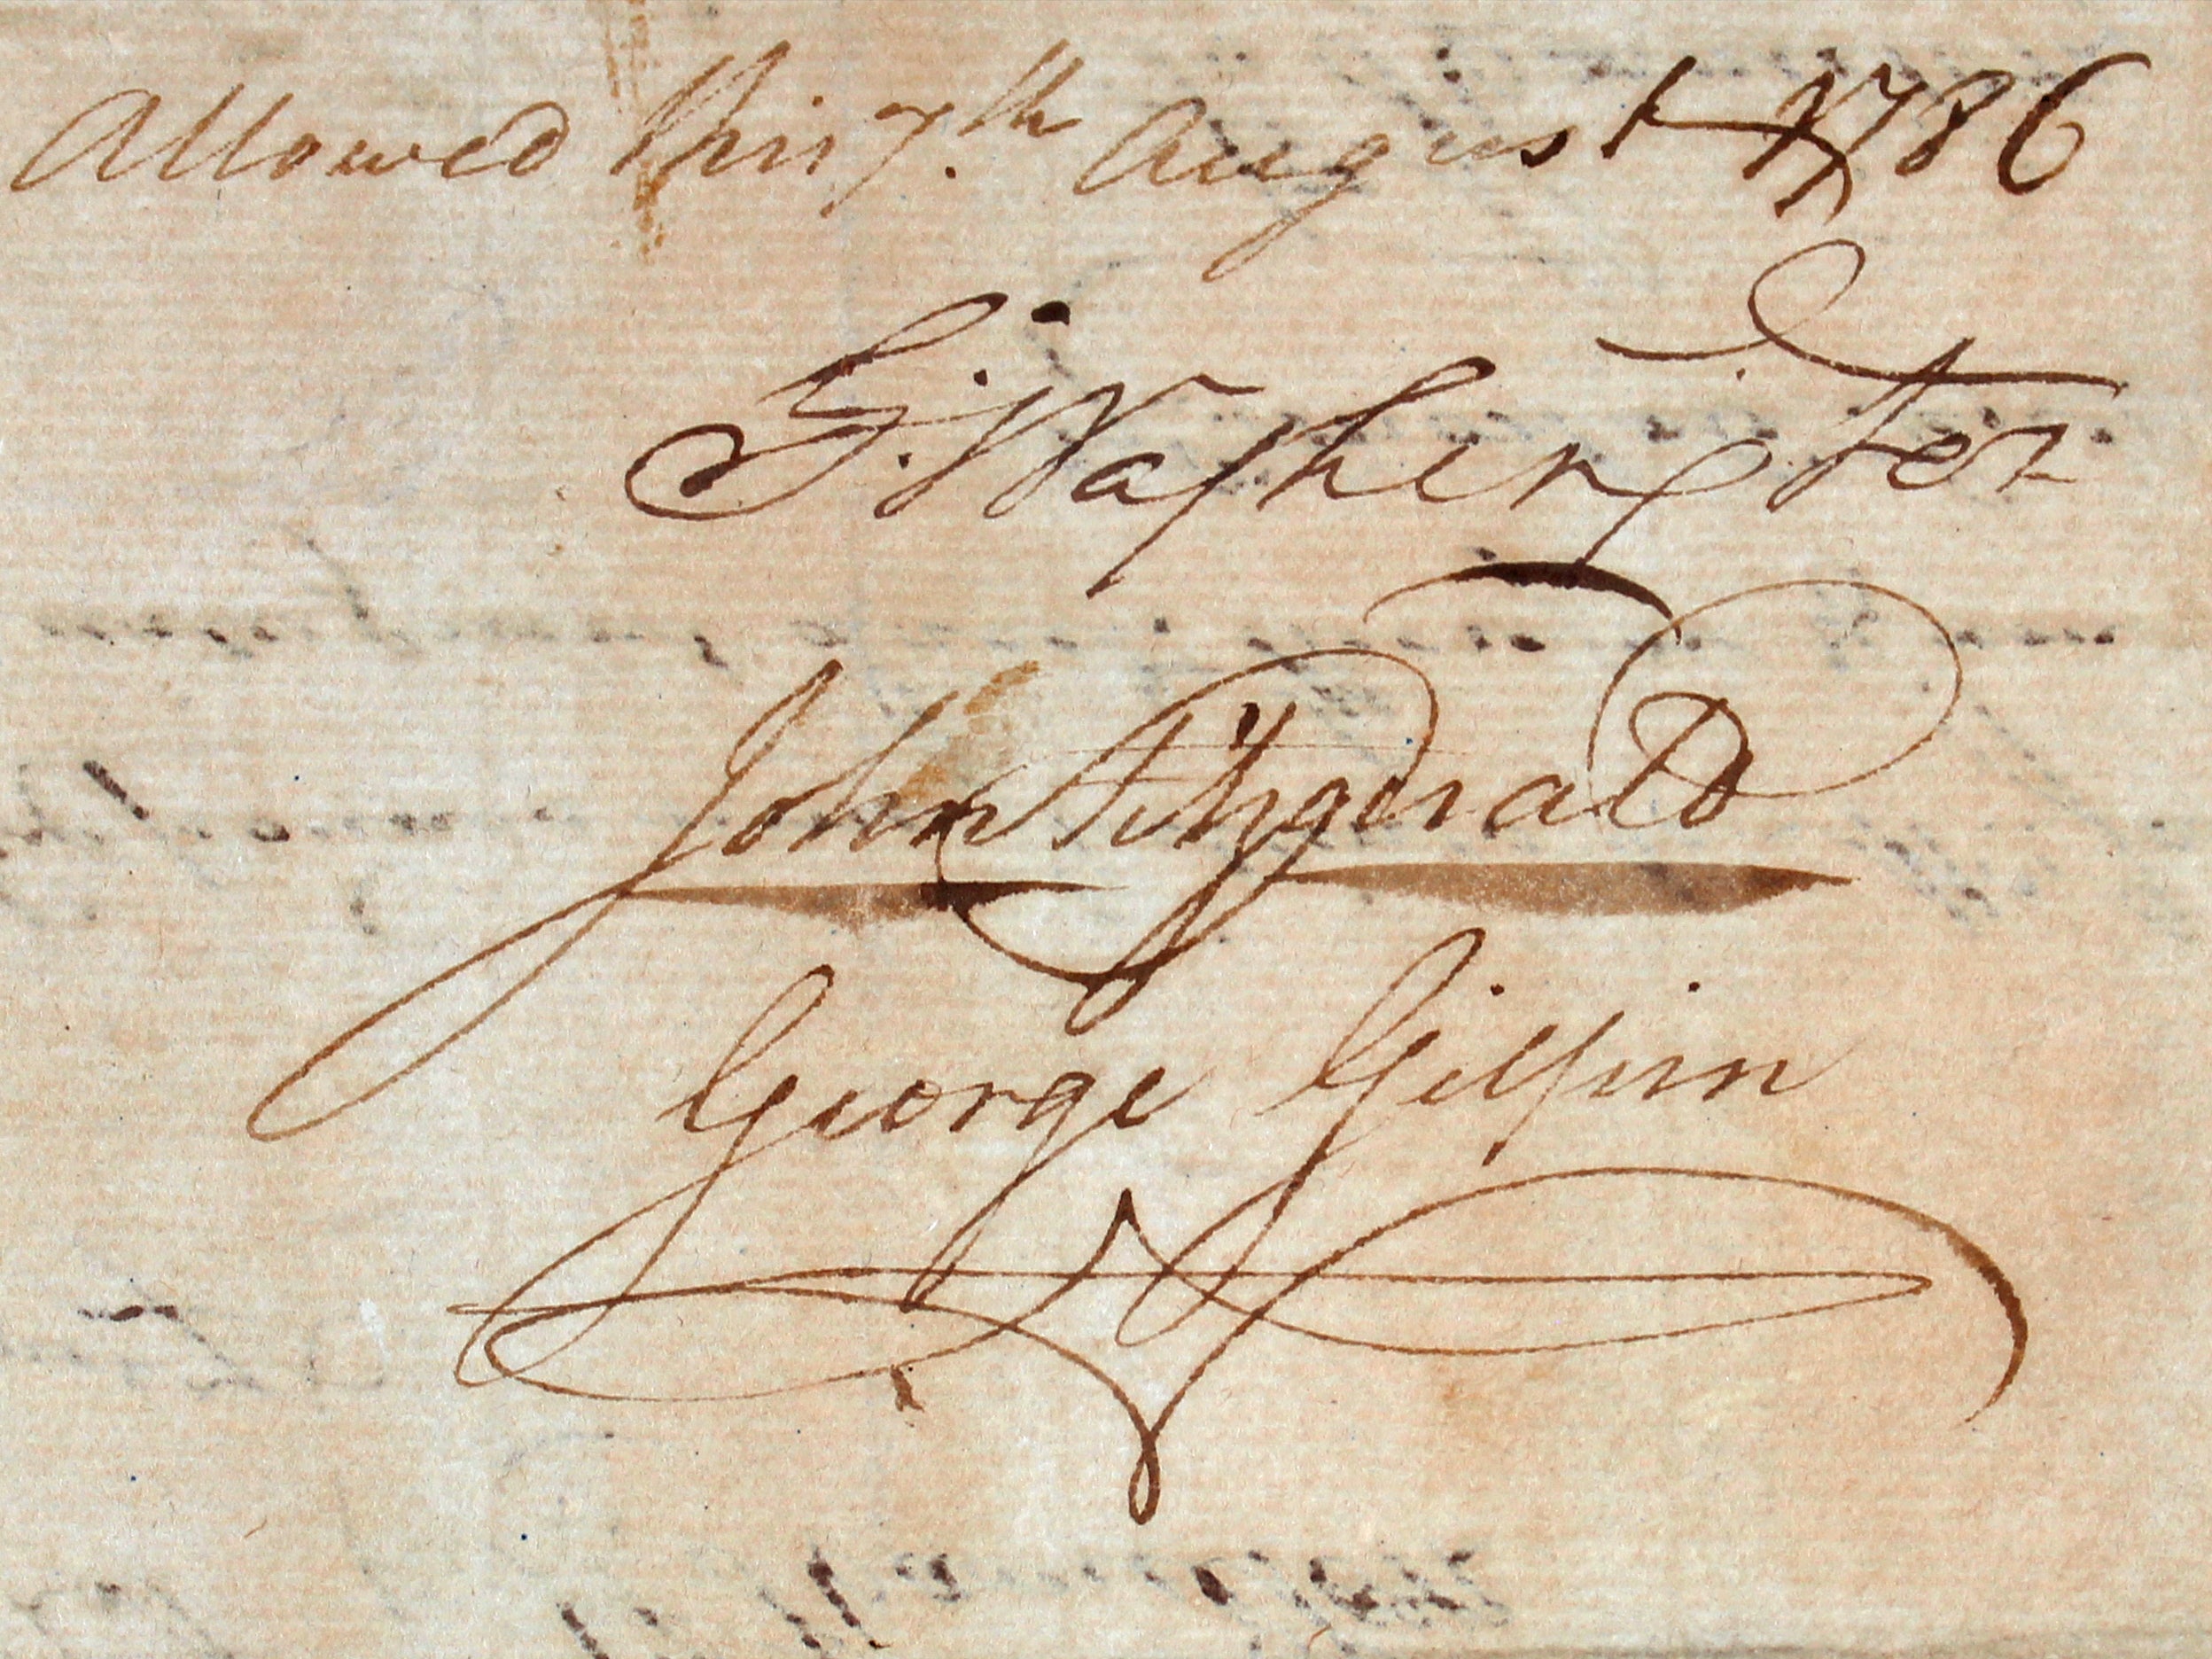 Allowed this 7.th August 1786
G:Washington
John Fitzgerald
George Gilpin